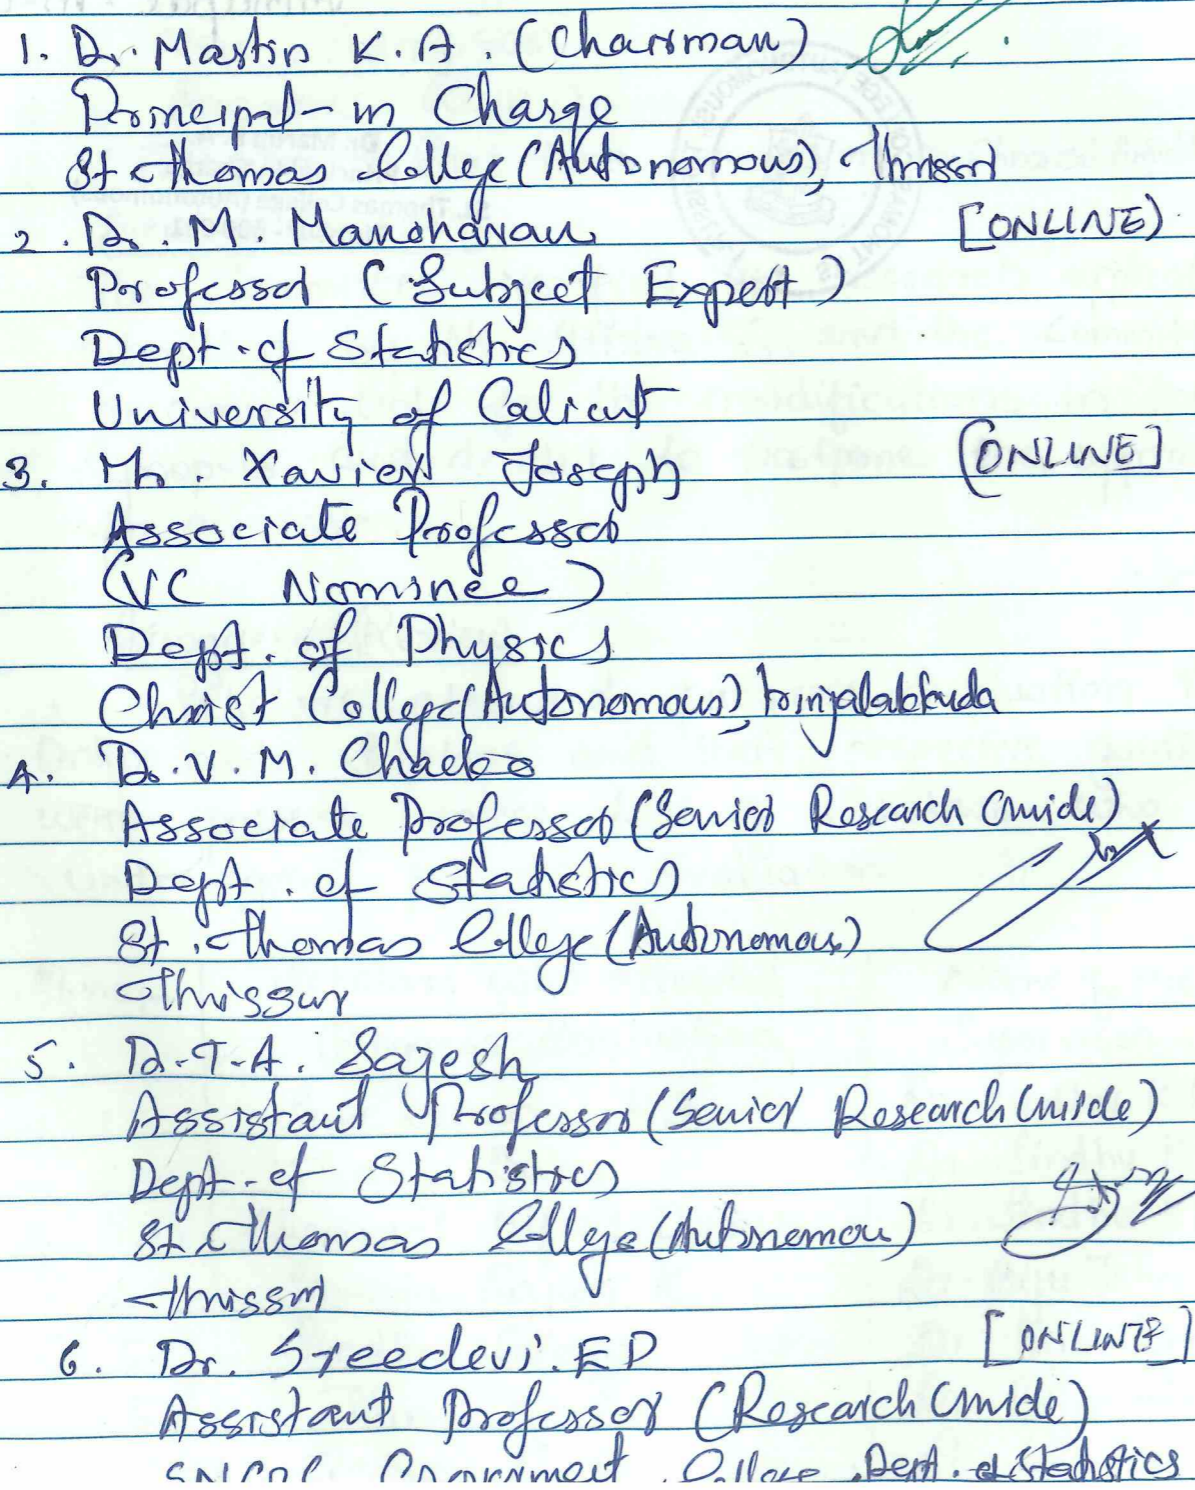 1. Dr. Martin K.A. (Chairman)
Principal-in Charge
St Thomas College (Autonomous), Thrissur
2. Dr. M. Manoharan [ONLINE)
Professor (Subject Expert)
Dept. of Statistics
University of Calicut
3. Mr. Xavier Joseph [ONLINE]
Associate Professor
(VC Nominee)
Dept. of Physics
Christ College (Autonomous), Irinjalakkuda
4. Dr. V. M. Chacko
Associate Professor (Senior Research Guide)
Dept. of Statistics
St. Thomas College (Autonomous)
Thrissur
5. Dr. T. A. Sajesh
Assistant Professor (Senior Research Guide)
Dept. of Statistics
St. Thomas College (Autonomou)
Thrissur
6. Dr. Sreedevi. E P [ONLINE]
Assistant Professor (Research Guide)
Government College, Dept. of Statistics